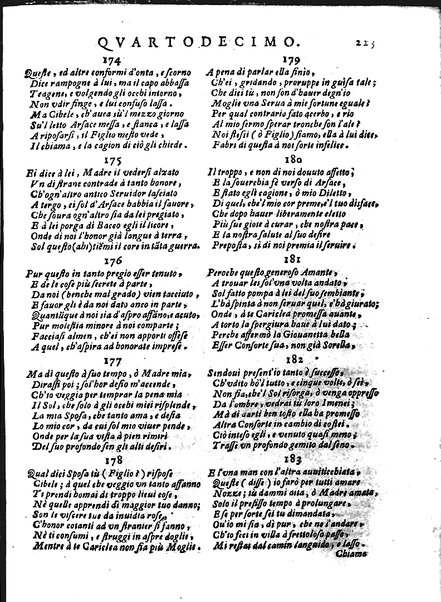 QVARTODECIMO. 223
174
Queste, ed altre conformi d'onta, e scorno
Dice rampogne à lui, ma il capo abbassa
Teagene, e volgendo gli occhi intorno,
Non vdir finge, e lui confuso lassa.
Ma Cibele, ch'auea su'l mezzo giorno
Su'l letto Arsace messa, e stanca, e lassa
A riposarsi, il Figlio mesto vede,
Il chiama, e la cagion di ciò gli chiede.
175
Ei dice à lei, Madre il vedersi alzato
Vn di strane contrade à tanto honore,
Ch'ogn'altro antico Seruidor lasciato
A tergo, ei sol d'Arsace habbia il fauore,
Che soura ogn'altro sia da lei pregiato,
E à lei porga di Bacco egli il licore,
Onde di noi l'honor già langue à terra,
Sol questo (ahi) tiẽmi il core in tãta guerra.
176
Pur questo in tanto pregio esser tenuto,
E de le cose più secrete à parte,
Da noi (benche mal grado) vien tacciuto,
E fauor gli è da noi dato anco in parte,
Quantũque à noi sia d'aspro affãno, e acuto,
Pur molestia minore à noi comparte;
Facciasi almen, ch'ei non apporti offese
A quel, ch'aspira ad honorate imprese.
177
Ma di questo à suo tempo, ò Madre mia,
Dirassi poi; sol'hor desio m'accende,
Ch'io veggia per temprar la pena mia
Il Sol, che solo à gli occhi miei risplende,
La mia Sposa, che tanto ama, e desia
Lo mio cor, da cui sol mio viuer pende,
Onde per la sua vista à pien rimiri
Del suo profondo sen gli alti desiri.
178
Qual dici Sposa tù (Figlio è) rispose
Cibele; à quel che veggio vn tanto affanno
Ti prendi homai di troppo lieui cose,
Nè quelle apprendi di maggior tuo danno;
Son le viscere tue da inuidia rose,
C'honor cotanti ad vn straniero si fanno,
Nè ti consumi, e struggi in aspre doglie,
Mentre à te Cariclea non sia più Moglie.
179
A pena di parlar ella finio,
Ch'ei, gridando, proruppe in guisa tale;
Che dici tù, non son d'hauer degn'io
Moglie vna Serua à mie fortune eguale?
Per qual contrario fato acerbo, e rio
Al mio fermo sperar troncbe son l'ale?
Noi stessi (ò Figlio) siamo, ella à lui dice,
Fabri di questa à noi sorte infelice.
180
Il troppo, e non di noi douuto affetto;
E la souerchia fè verso di Arsace,
E stato egli cagione, ò mio Diletto,
Di quel, che'l mio cor preme, e'l tuo disface,
Che dopo hauer liberamente eletto
Più sue gioie à curar, che nostra pace,
E la nostra salute al suo desire
Preposta, si di noi premia il seruire.
181
Peroche questo generoso Amante,
A trouar lei sol'vna volta andato,
Sol fatto pompa à lei del suo sembiante,
L'hà spinta à non seruar quel, c'hà giurato;
Onde, à te Cariclea promessa auante,
A torto la spergiura baue à lui dato;
Perche affermò la Giouanetta bella
Esser Consorte sua, non già Sorella,
182
Sendoui present'io tanto è successo,
Ch'vdito hò'l tutto, e cinque volte, ò sei,
Non fia, che'l Sol risorga, ò venga oppresso
Da l'ombre, vedrai tù loro Imenei;
Mà di darti ben tosto ella hà promesso
Altra Consorte in cambio di costei.
Ciò inteso egli, e venuto quasi meno;
Trasse vn profondo gemito dal seno.
183
E l'vna man con l'altra auuiticchiata,
Queste (disse) io farò per tutti amare
Nozze; tù dammi aita, ò Madre amata,
Solo il prefisso tempo à prolungare,
E se per sorte sei tu dimandata,
Qu'io mi sia, di pur, che ne l'andare,
Ch'io feci in villa à frettoloso passo
Mi restai dal camin languido, e lasso.
Chiama